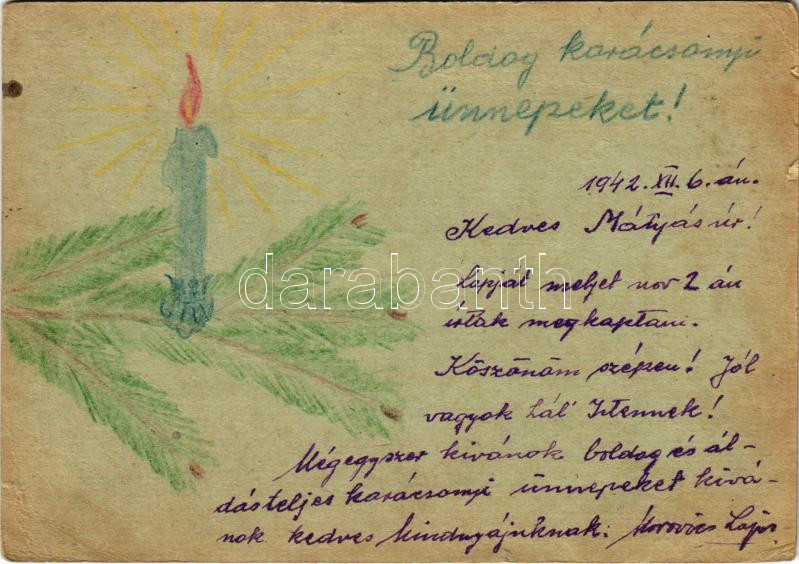 Boldog karácsonyi
ünnepeket!
1942. XII. 6.-án.
Kedves Mátyás úr!
Lapját melyet nov 2 án
írtak megkaptam.
Köszönöm szépen! Jól
vagyok hál' Istennek!
Mégegyszer kivánok boldog és ál-
dásteljes karácsonyi ünnepeket kivá-
nok kedves Mindnyájuknak: Lajos
darabanth